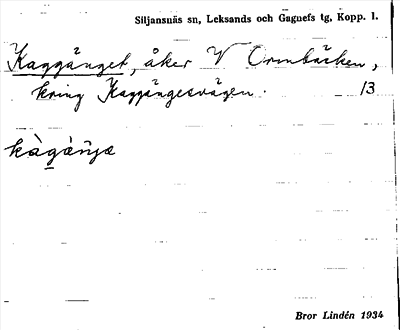 Siljansnäs sn, Leksands och Gagnefs tg, Kopp. l.
Kaggänget, åker V Ormbäcken,
kring Kaggängesvägen. 13
kàgàŋ̃jæ
Bror Lindén 1934